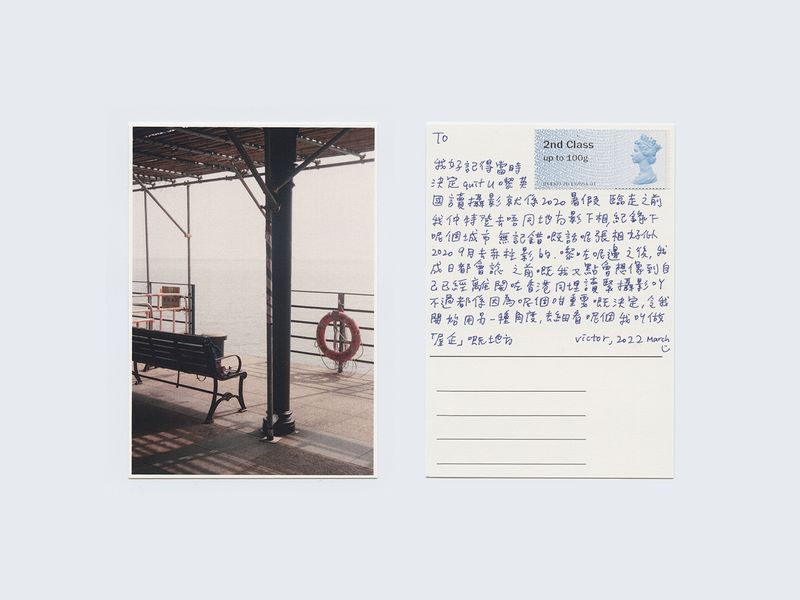 To
2nd Class
up to 100g
我好記得當時
決定 quit U 嚟英
國讀攝影 就係2020 暑假 臨走之前
我仲特登去唔同地方影下相,紀錄下
呢個城市 無記錯嘅話呢張相好似
2020 9月去赤柱影的.嚟咗呢邊之後,我
成日都會諗 之前嘅我又點會想像到自
己已經離開咗香港同埋讀緊攝影吖
不過都係因為呢個咁重要嘅決定,令我
開始用另一種角度,去細看呢個我叫做
「屋企」嘅地方 victor, 2022 March